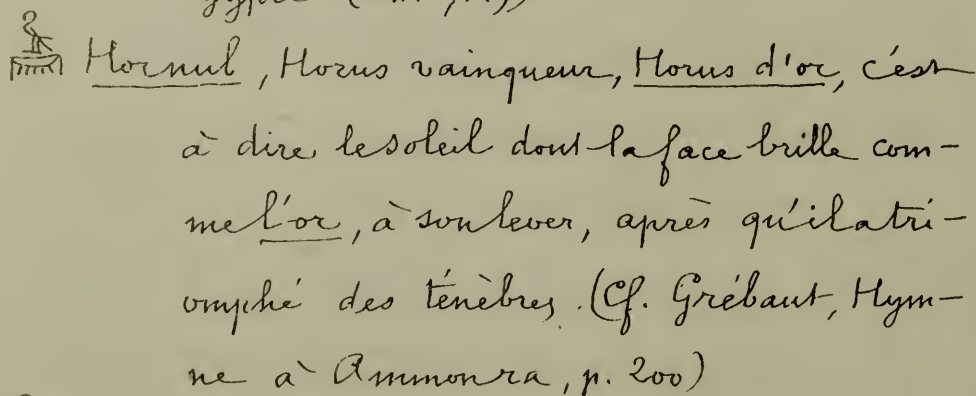 Hornul, Horus vainqueur, Horus d'or, c'est
à dire le soleil dont la face brille com-
me l'or, à son lever, après qu'il a tri-
omphé des ténèbres. (Cf. Grébaut, Hym-
ne à Ammonra, p. 200)